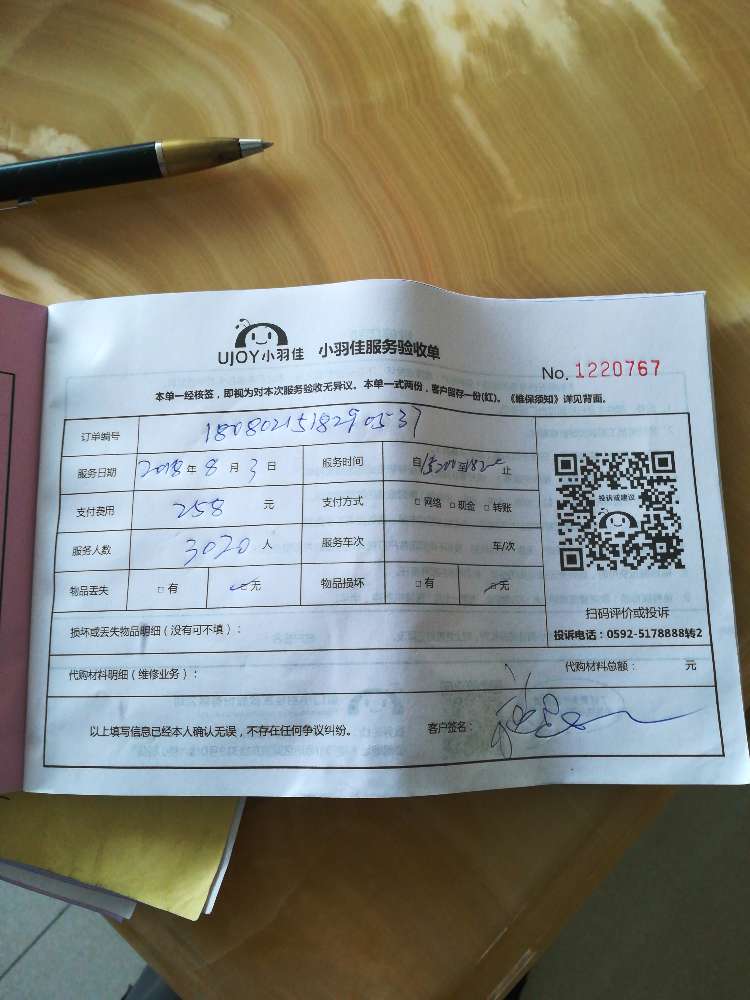 UJOY小羽佳 小羽佳服务验收单
No. 1220767
本单一经核签，即视为对本次服务验收无异议。本单一式两份，客户留存一份(红)。《维保须知》详见背面。
订单编号 1808021518290537
服务日期 2018年8月3日 服务时间 自 至 止
支付费用 258 元 支付方式 □网络 □现金 □转账
服务人数 3020 人 服务车次 车/次
物品丢失 □有 □无 物品损坏 □有 □无
投诉或建议
扫码评价或投诉
投诉电话：0592-5178888转2
损坏或丢失物品明细（没有可不填）：
代购材料明细（维修业务）： 代购材料总额： 元
以上填写信息已经本人确认无误，不存在任何争议纠纷。 客户签名：